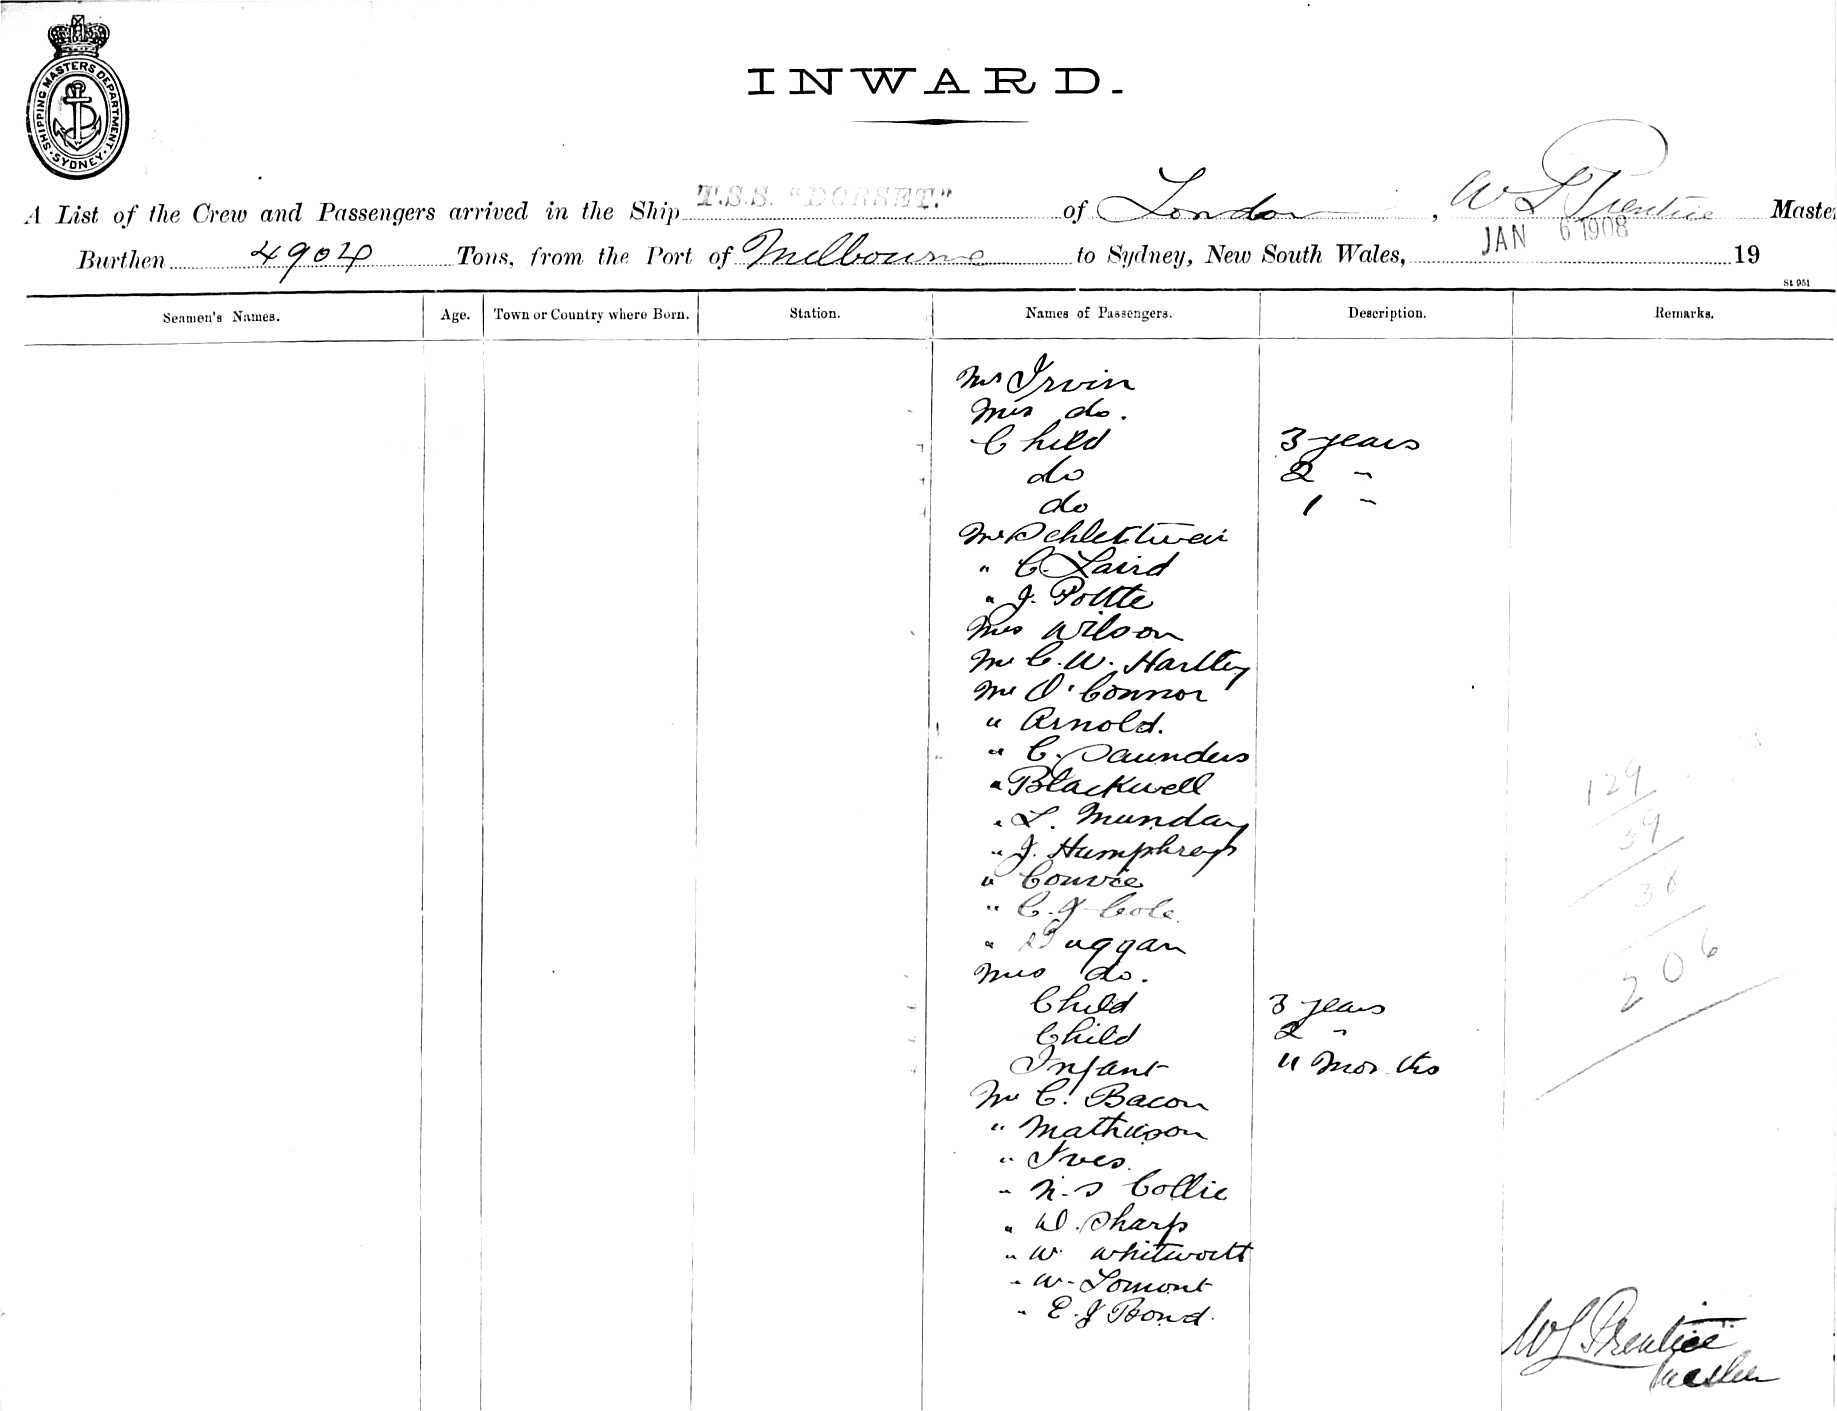 SHIPPING MASTERS DEPARTMENT · SYDNEY ·
INWARD.
A List of the Crew and Passengers arrived in the Ship T.S.S. "DORSET." of London, W L Prentice Master
Burthen 4904 Tons, from the Port of Melbourne to Sydney, New South Wales, JAN 6 1908 19
St 951
Seamen's Names. Age. Town or Country where Born. Station. Names of Passengers. Description. Remarks.
Mr Irvin
Mrs do.
Child 3 years
do 2 "
do 1 "
Mr
" C. Laird
" J.
Mrs Wilson
Mr C. W. Hartley
Mr O'Connor
" Arnold.
" C. Saunders
" Blackwell
" L. Munday
" J. Humphreys
"
" C. J Cole
" Duggan
Mrs do.
Child 3 years
Child 2 "
Infant 11 Months
Mr C. Bacon
" Mathieson
" Ives.
" N. S Collie
" W. Sharp
" W. Whitworth
" W. Lomont
" E. J Bond.
129
39
38
206
W L Prentice
Master